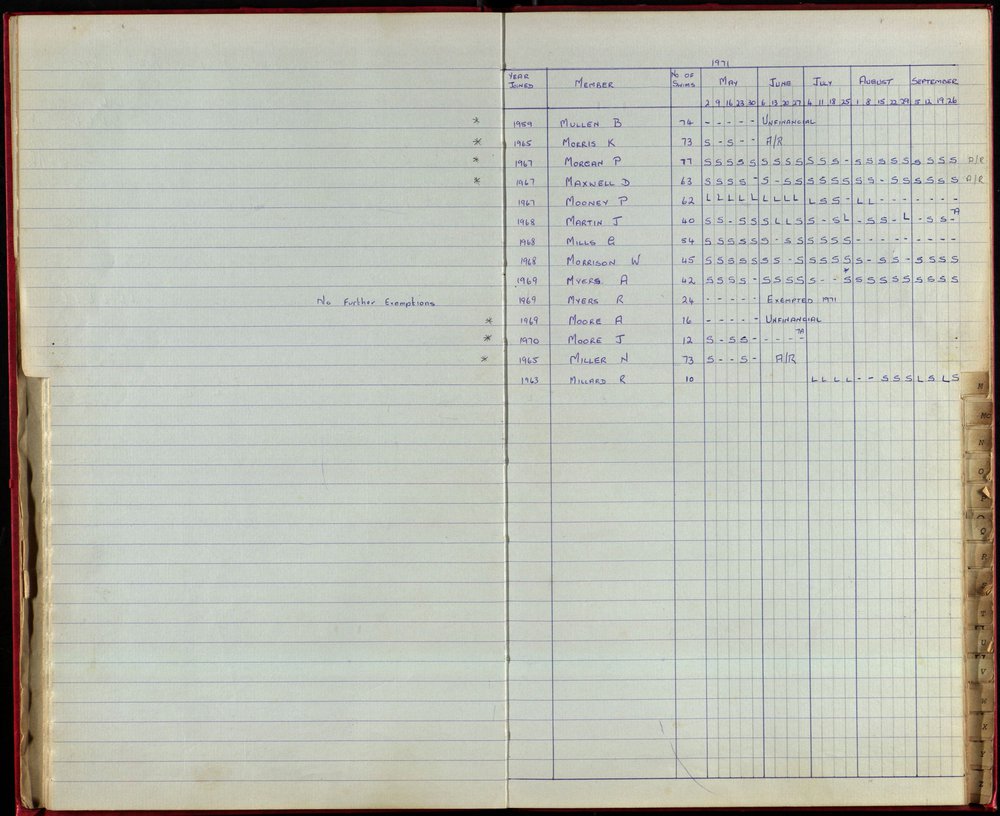 1971
YEAR JOINED MEMBER No OF SWIMS MAY JUNE JULY AUGUST SEPTEMBER
2 9 16 23 30 6 13 20 27 4 11 18 25 1 8 15 22 29 5 12 19 26
* 1959 MULLEN B 74 - - - - - UNFINANCIAL
* 1965 MORRIS K 73 S - S - - A/R
* 1967 MORGAN P 77 S S S S S S S S S S S S - S S S S S S S S S A/R
* 1967 MAXWELL D 63 S S S S - S - S S S S S S S S - S S S S S S A/R
1967 MOONEY P 62 L L L L L L L L L L S S - L L - - - - - - -
1968 MARTIN J 60 S S - S S S L L S S - S L - S S - L - S S - 7A
1968 MILLS G 54 S S S S S S - S S S S S S - - - - - - - - -
1968 MORRISON W 45 S S S S S S S - S S S S S S - S S - S S S S
1969 MYERS A 42 S S S S - S S S S S - - S * S S S S S S S S S
No Further Exemptions 1969 MYERS R 24 - - - - - EXEMPTED 1971
* 1969 MOORE A 16 - - - - - UNFINANCIAL
* 1970 MOORE J 12 S - S S - - - - - 7A
* 1965 MILLER N 73 S - - S - A/R
1963 MILLARD R 10 L L L L - - S S S L S L S
M
Mc
N
O
Q
R
T
U
V
W
X
Y
Z